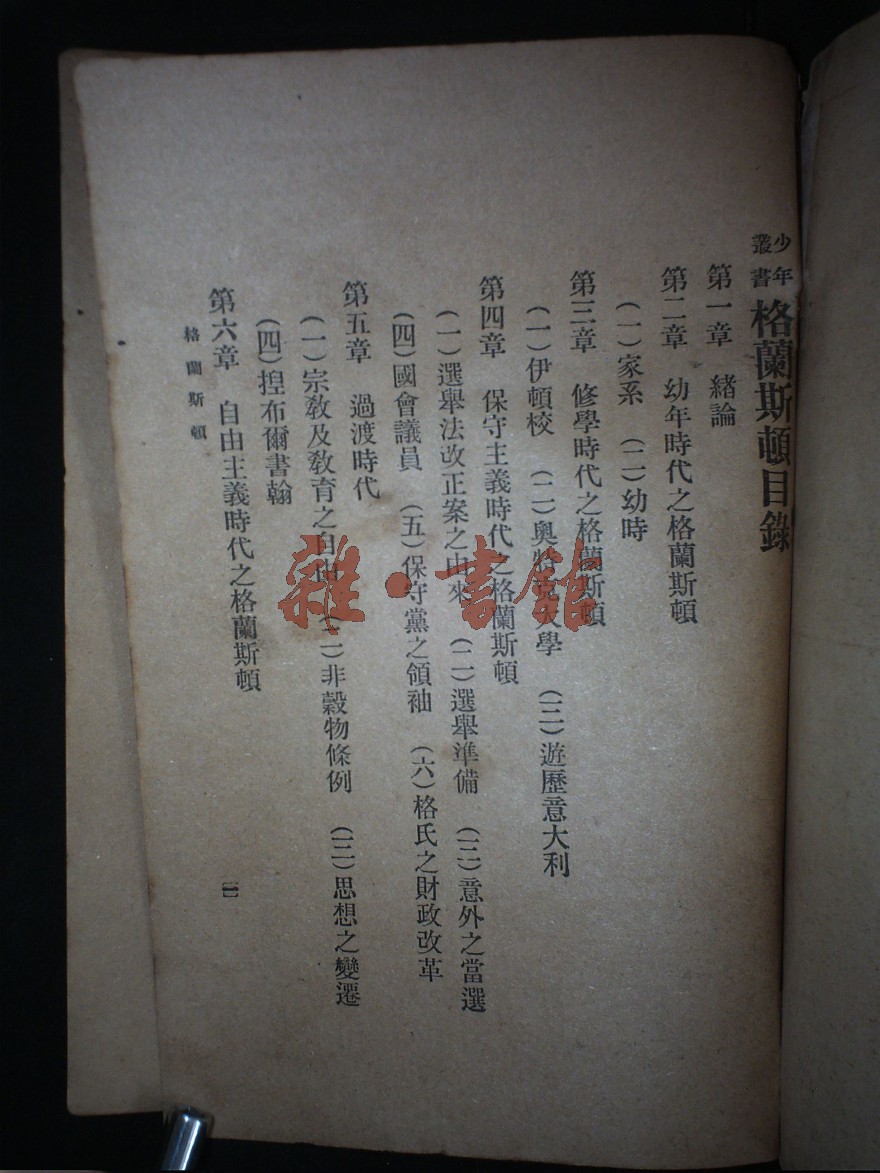 少年叢書 格蘭斯頓目錄
第一章 緒論
第二章 幼年時代之格蘭斯頓
(一)家系 (二)幼時
第三章 修學時代之格蘭斯頓
(一)伊頓校 (二)奧特大學 (三)遊歷意大利
第四章 保守主義時代之格蘭斯頓
(一)選舉法改正案之由來 (二)選舉準備 (三)意外之當選
(四)國會議員 (五)保守黨之領袖 (六)格氏之財政改革
第五章 過渡時代
(一)宗教及教育之自由 (二)非穀物條例 (三)思想之變遷
(四)揑布爾書翰
第六章 自由主義時代之格蘭斯頓
格蘭斯頓
一
雜·書館